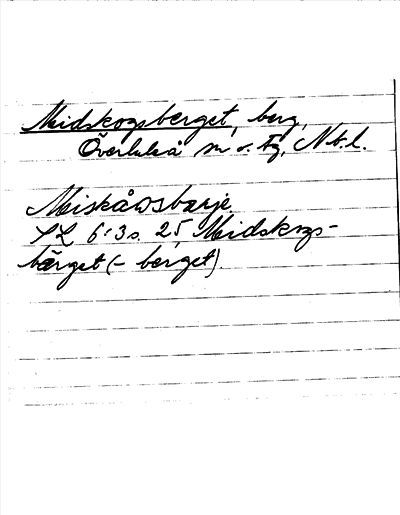 Midskogsberget, berg,
Överluleå sn o. tg, Nb.l.
Miskåwsbarje
SL 6:3 s. 25 Midskogs-
bärget (- berget)